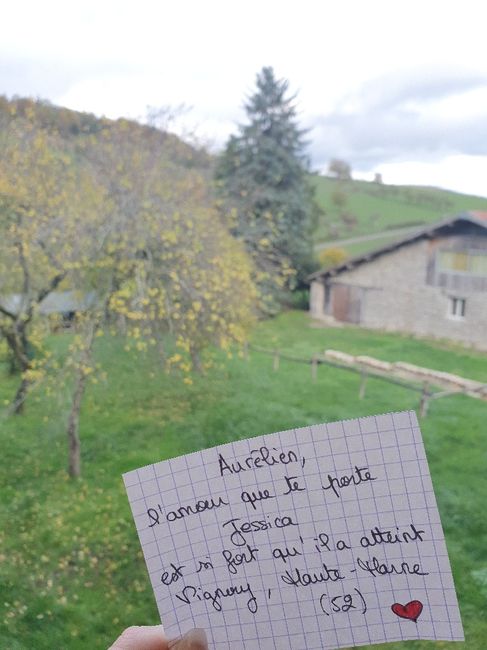 Aurélien,
l'amour que te porte
Jessica
est si fort qu'il a atteint
Vignory, Haute-Marne
(52)